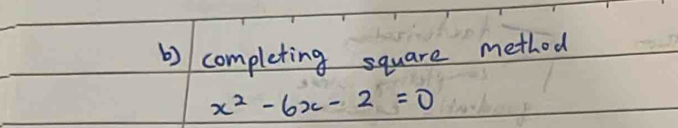 b) completing square method
x² - 6x - 2 = 0